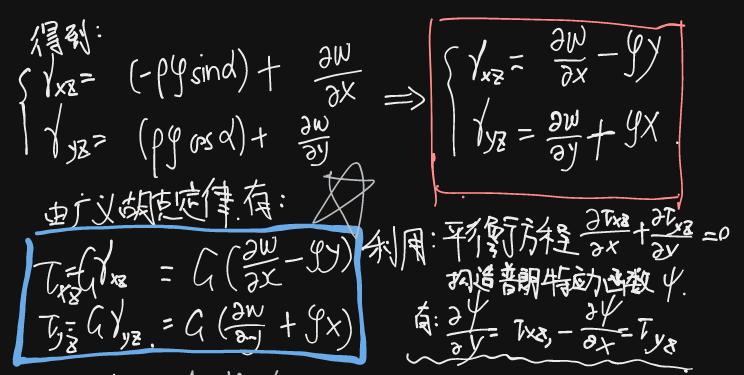 得到:
γxz = (-ρφsinα) + ∂w/∂x
γyz = (ρφcosα) + ∂w/∂y
⇒
γxz = ∂w/∂x - φy
γyz = ∂w/∂y + φx
由广义胡克定律,有:
τxz=Gγxz = G(∂w/∂x - φy)
τyz=Gγyz = G(∂w/∂y + φx)
利用:平衡方程 ∂τxz/∂x + ∂τxz/∂y = 0
构造普朗特应力函数 ψ.
有: ∂ψ/∂y = τxz, -∂ψ/∂x = τyz